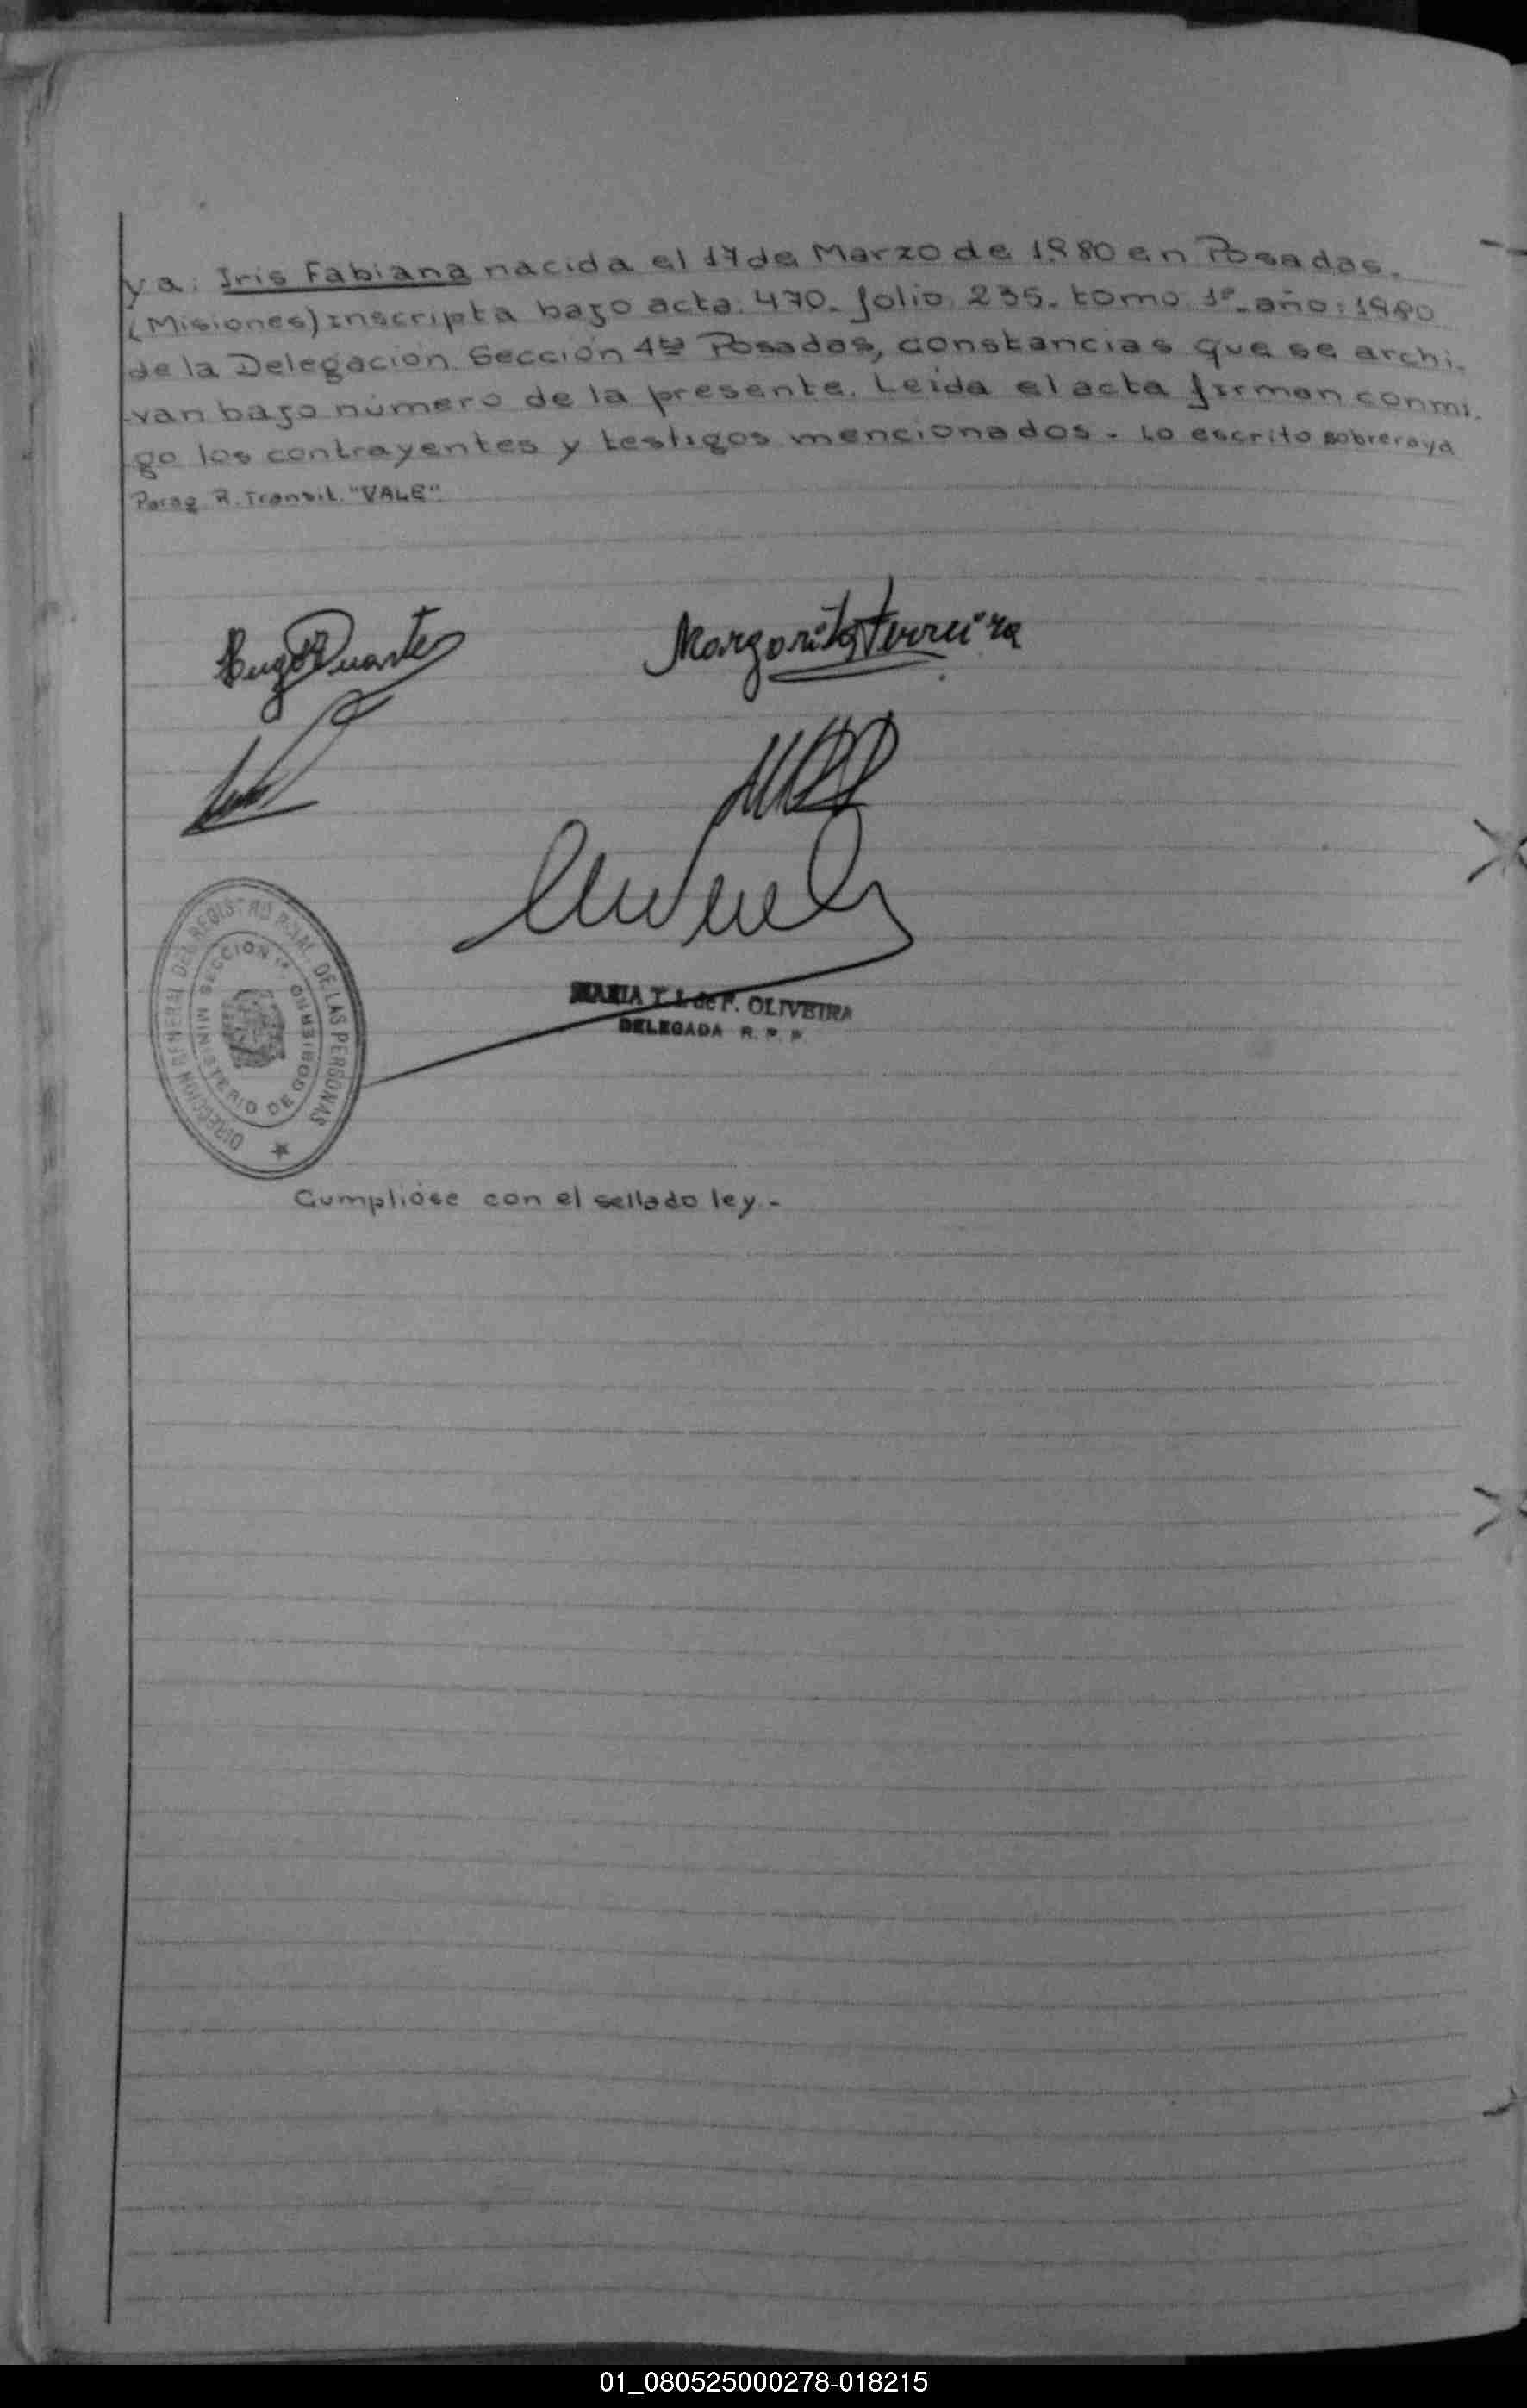 y a: Iris Fabiana nacida el 17 de Marzo de 1.980 en Posadas.
(Misiones) inscripta bajo acta: 470. folio: 235. tomo: 1º. año: 1980
de la Delegación Sección 4ta Posadas, constancias que se archi-
van bajo número de la presente. Leída el acta firman conmi-
go los contrayentes y testigos mencionados. Lo escrito sobreraya
Parag. R. Transit. "VALE"
Hugo Duarte
Margarita Ferreira
MARIA T. de F. OLIVEIRA
DELEGADA R. P. P.
DIRECCION GENERAL DEL REGISTRO PCIAL. DE LAS PERSONAS
SECCION 1ª
MINISTERIO DE GOBIERNO
Cumplióse con el sellado ley.-
01_080525000278-018215